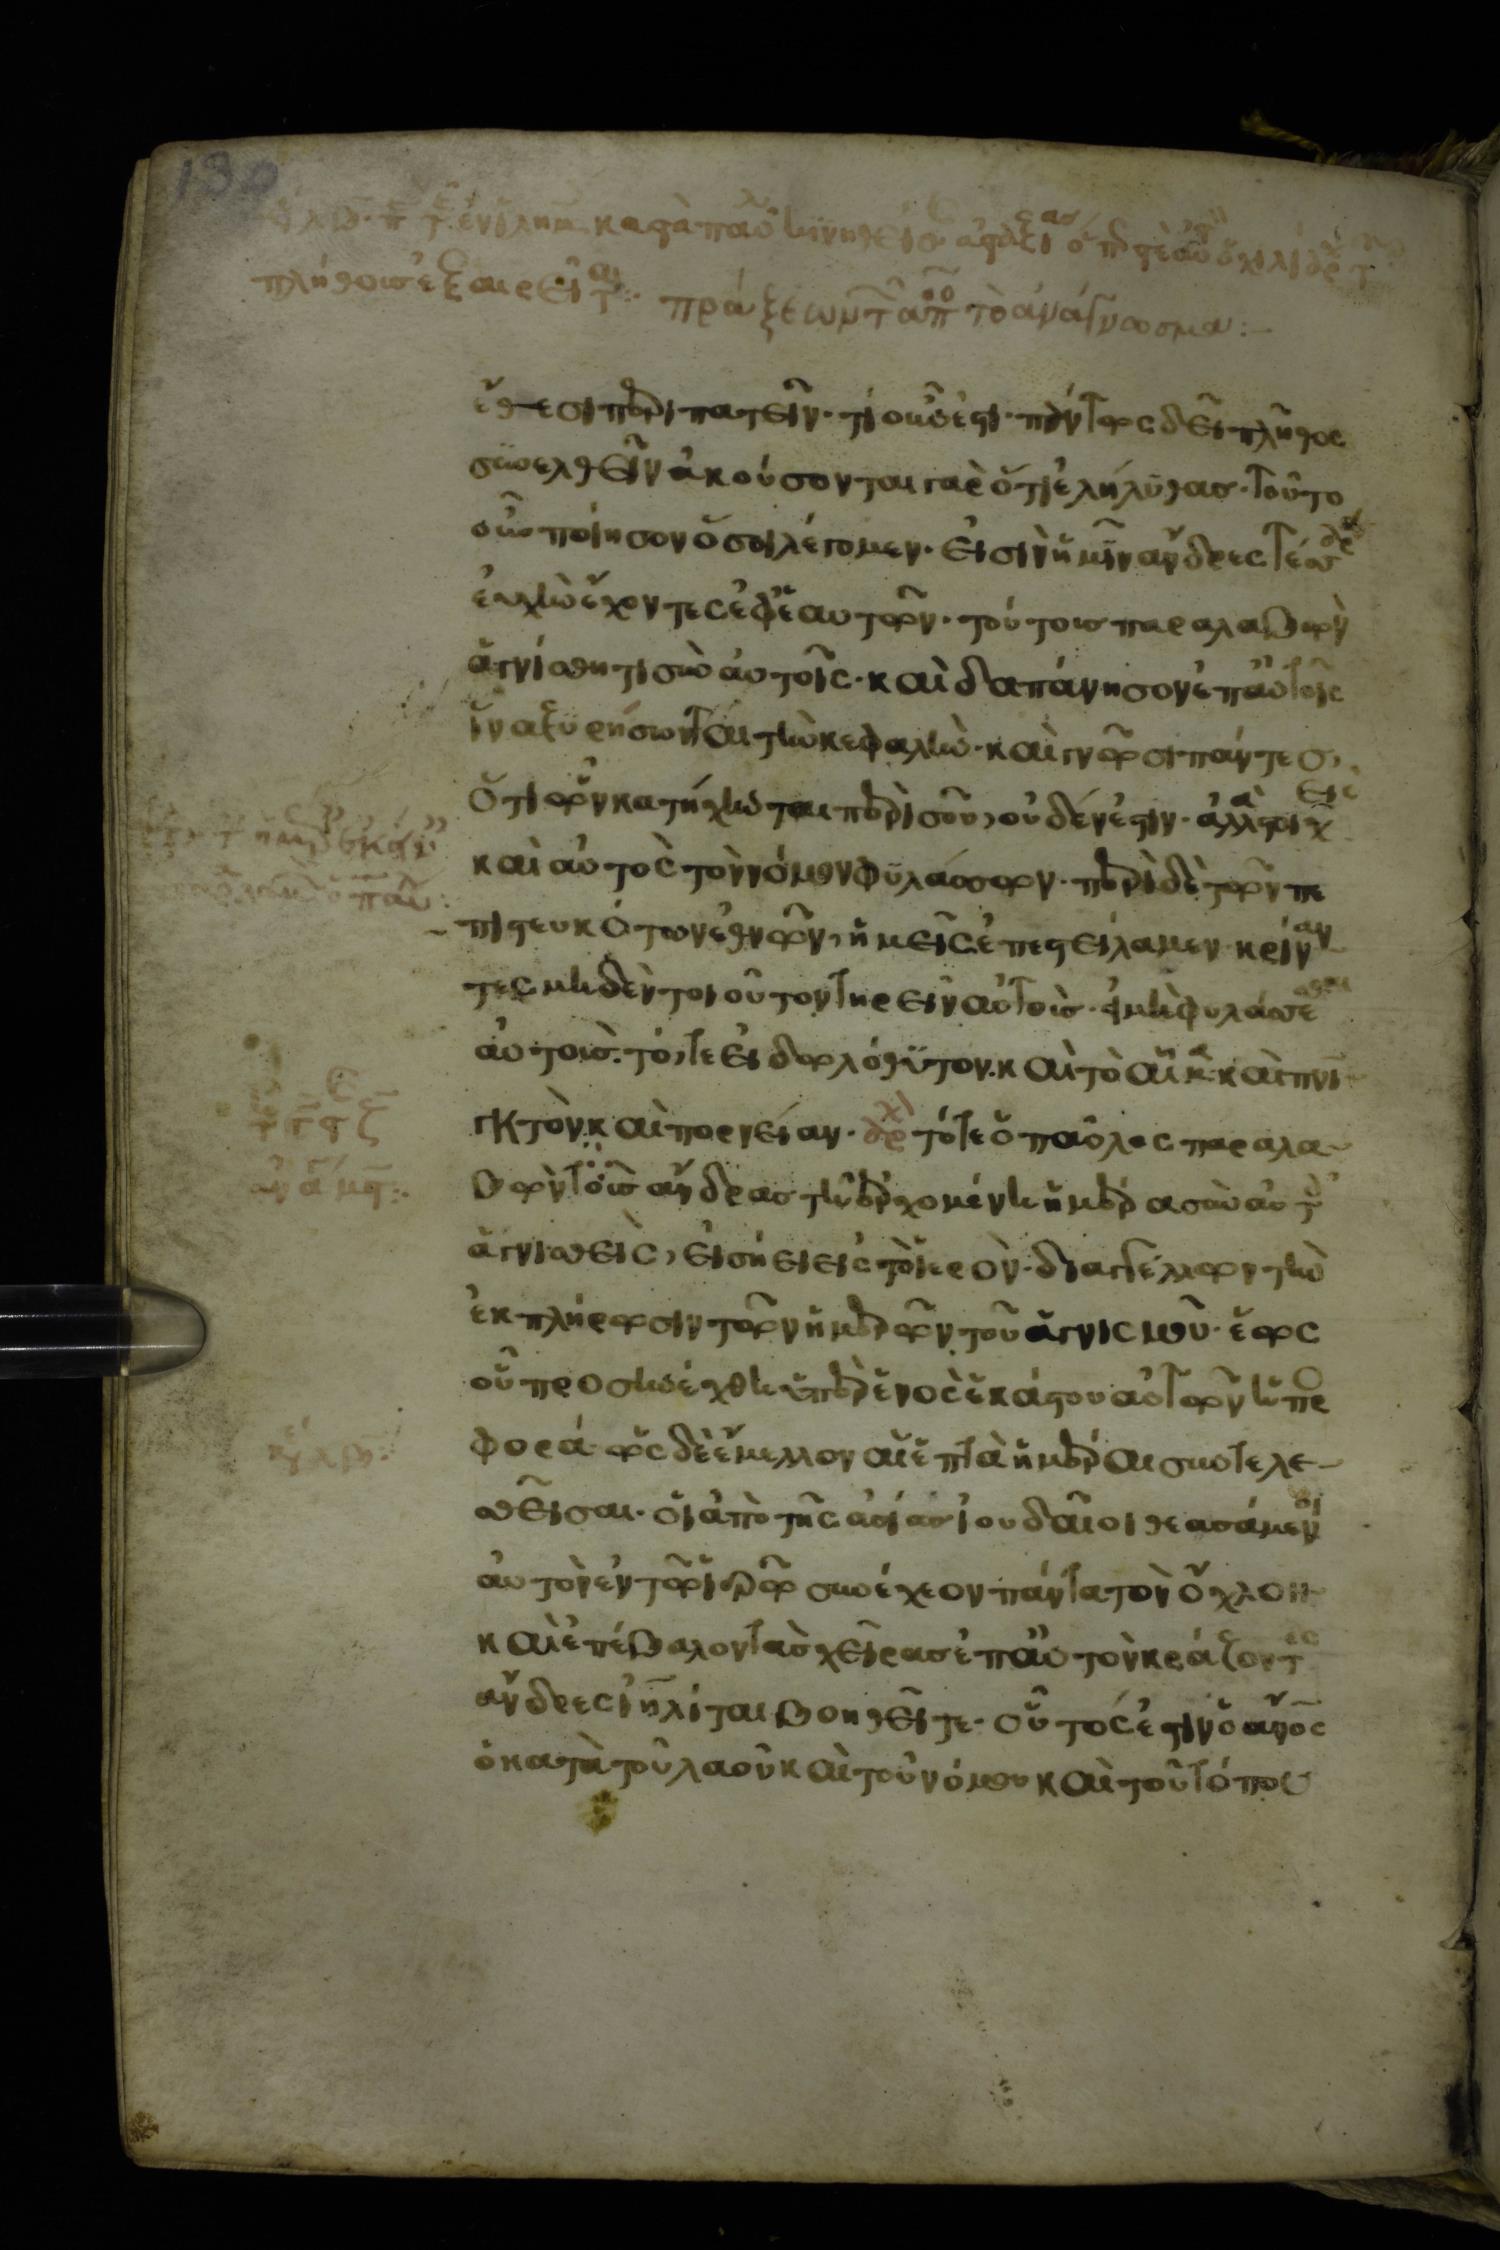 130
πλήθους ἐξαιρεῖται :· πράξεων τ ἀπο τὸ ἀνάγνωσμα :-
ἔθεσι περιπατεῖν· τί οὖν ἐστι· πάντως δεῖ πλῆθος
συνελθεῖν ἀκούσονται γὰρ ὅτι ἐλήλυθας· τοῦτο
οὖν ποίησον ὅ σοι λέγομεν· εἰσὶν ἡμῖν ἄνδρες τέσσαρες
εὐχὴν ἔχοντες ἐφ' ἑαυτῶν· τούτους παραλαβὼν
ἁγνίσθητι σὺν αὐτοῖς· καὶ δαπάνησον ἐπ' αὐτοῖς
ἵνα ξυρήσωνται τὴν κεφαλήν· καὶ γνῶσι πάντες,
ὅτι ὧν κατήχηνται περὶ σοῦ, οὐδέν ἐστιν· ἀλλὰ στοιχεῖς
καὶ αὐτὸς τὸν νόμον φυλάσσων· περὶ δὲ τῶν πε
πιστευκότων ἐθνῶν, ἡμεῖς ἐπεστείλαμεν κρίναν
τες μηδὲν τοιοῦτον τηρεῖν αὐτοὺς· εἰ μὴ φυλάσσεσθαι
αὐτοὺς. τό, τε εἰδωλόθυτον. καὶ τὸ αἷμα. καὶ πνι
κτὸν. καὶ πορνείαν· ἀρχὴ τότε ὁ παῦλος παραλα
βὼν τοὺς ἄνδρας τῇ ἐρχομένῃ ἡμέρα σὺν αὐτοῖς
ἁγνισθεὶς, εἰσήει εἰς τὸ ἱερὸν· διαγγέλλων τὴν
ἐκπλήρωσιν τῶν ἡμερῶν τοῦ ἁγνισμοῦ· ἕως
οὗ προσηνέχθη ὑπὲρ ἑνὸς ἑκάστου αὐτῶν ἡ προσ
φορά· ὡς δὲ ἔμελλον αἱ ἑπτὰ ἡμέραι συντελε
σθεῖσαι· οἱ ἀπὸ τῆς ἀσίας ἰουδαῖοι θεασάμενοι
αὐτὸν ἐν τῷ ἱερῷ συνέχεον πάντα τὸν ὄχλον
καὶ ἐπέβαλον τὰς χεῖρας ἐπ' αὐτὸν κράζοντες
ἄνδρες ἰηλῖται βοηθεῖτε· οὗτός ἐστιν ὁ ἄνος
ὁ κατὰ τοῦ λαοῦ καὶ τοῦ νόμου καὶ τοῦ τόπου